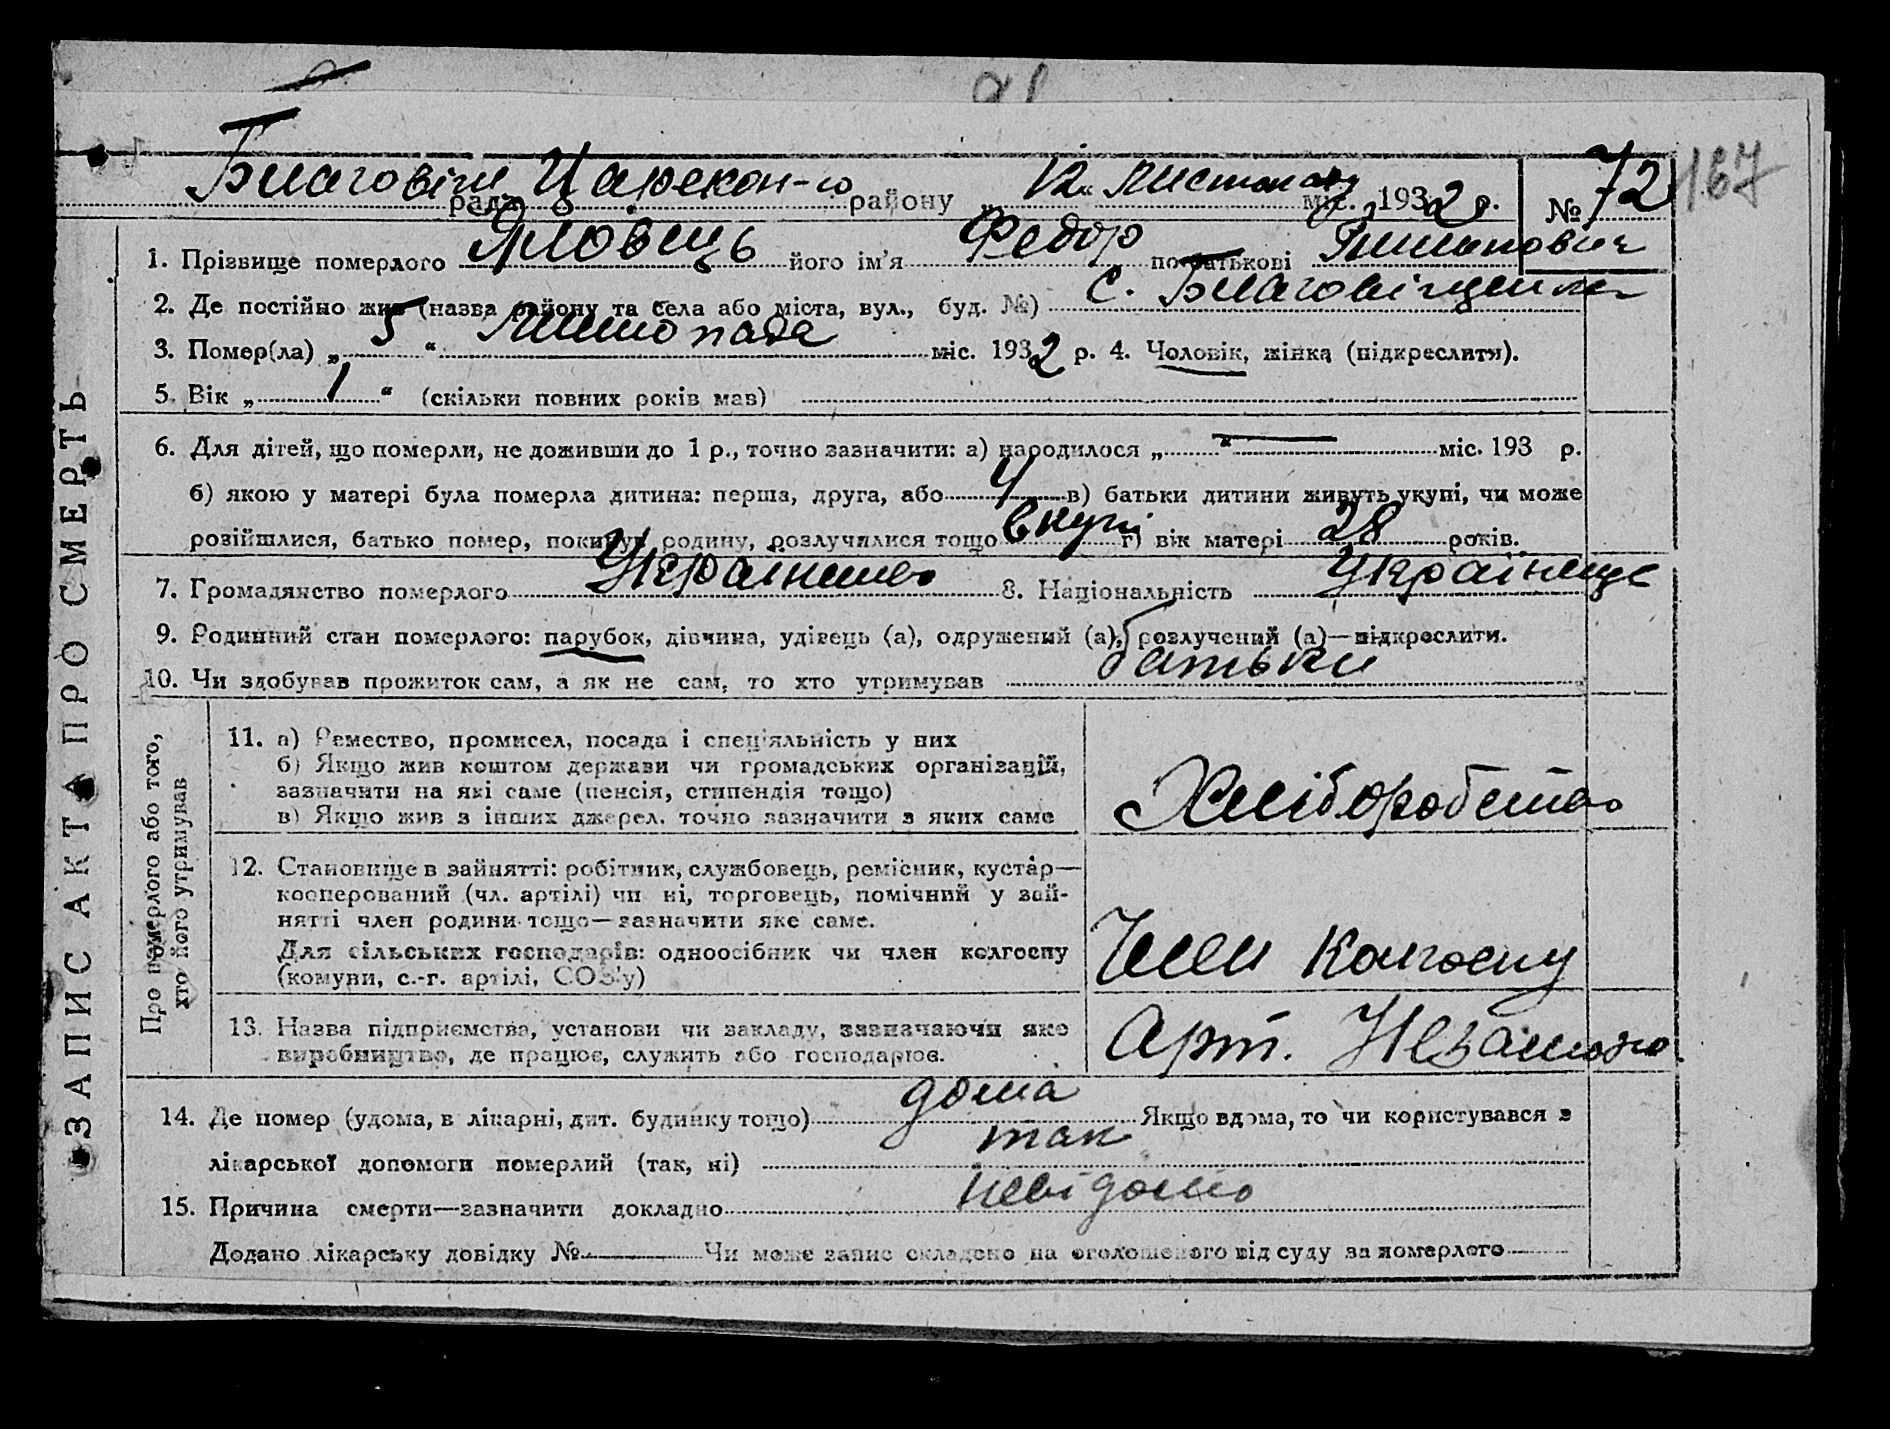 Благовіщ. рада Царекон-го району „12“ листопаду міс. 1932 р. № 72 167
1. Прізвище померлого Яловець його ім'я Федор по батькові
2. Де постійно жив (назва району та села або міста, вул., буд. №) с. Благовіщенка
3. Помер(ла) „5“ листопада міс. 1932 р. 4. Чоловік, жінка (підкреслити).
5. Вік „1“ (скільки повних років мав)
6. Для дітей, що померли, не доживши до 1 р., точно зазначити: а) народилося „ “ — міс. 193 р.
б) якою у матері була померла дитина: перша, друга, або 4 в) батьки дитини живуть укупі, чи може
розійшлися, батько помер, покинув родину, розлучилися тощо вкупі г) вік матері 28 років.
7. Громадянство померлого 8. Національність Українець
9. Родинний стан померлого: парубок, дівчина, удівець (а), одружений (а), розлучений (а)—підкреслити.
10. Чи здобував прожиток сам, а як не сам, то хто утримував батьки
ЗАПИС АКТА ПРО СМЕРТЬ
Про померлого або того,
хто його утримував
11. а) Ремество, промисел, посада і спеціяльність у них
б) Якщо жив коштом держави чи громадських організацій,
зазначити на які саме (пенсія, стипендія тощо)
в) Якщо жив з інших джерел, точно зазначити з яких саме
Хліборобство
12. Становище в зайнятті: робітник, службовець, ремісник, кустар—
кооперований (чл. артілі) чи ні, торговець, помічний у зай-
нятті член родини тощо—зазначити яке саме.
Для сільських господарів: одноосібник чи член колгоспу
(комуни, с.-г. артілі, СОЗ'у)
Член колгоспу
13. Назва підприємства, установи чи закладу, зазначаючи яке
виробництво, де працює, служить або господарює.
Арт. Незаможн.
14. Де помер (удома, в лікарні, дит. будинку тощо) дома Якщо вдома, то чи користувався з
лікарської допомоги померлий (так, ні) так
15. Причина смерти—зазначити докладно невідомо
Додано лікарську довідку № — Чи може запис складено на оголошеного від суду за померлого